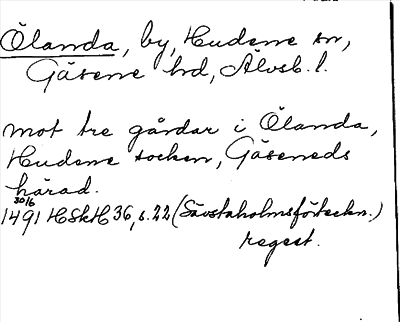 Ölanda, by, Hudene sn,
Gäsene hd, Älvsb. l.
mot tre gårdar i Ölanda,
Hudene socken, Gäseneds
härad.
30/6
1491 HSkH 36, s. 22 (Sävstaholmsförteckn.)
regest.